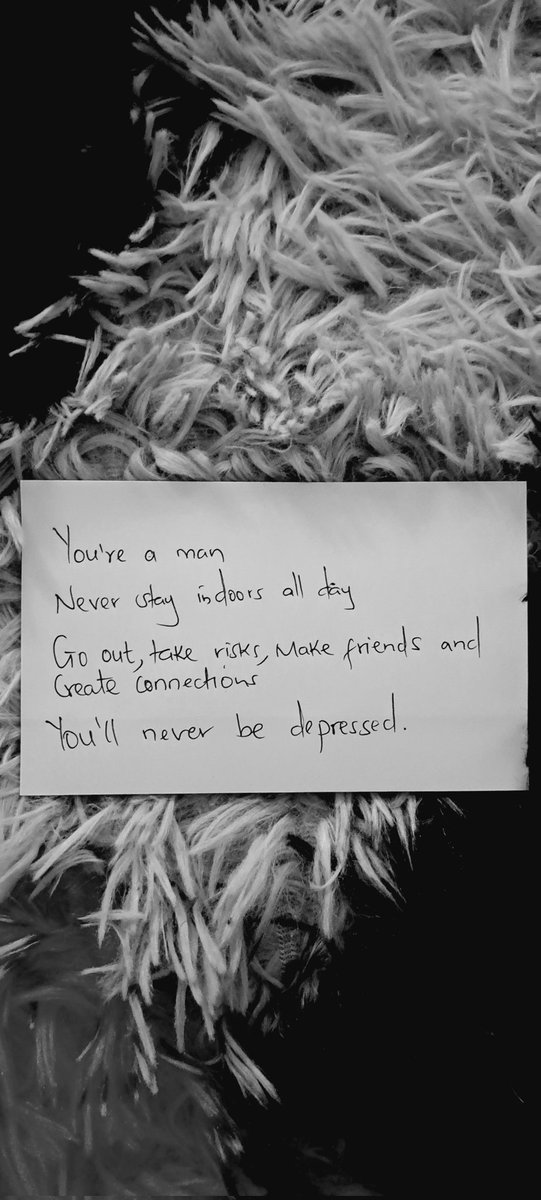 You're a man
Never stay indoors all day
Go out, take risks, Make friends and
Create Connections
You'll never be depressed.